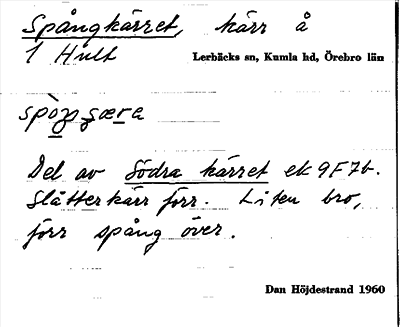 Spångkärret, kärr å
1 Hult
Lerbäcks sn, Kumla hd, Örebro län
Del av Södra kärret ek 9F7b.
Slåtterkärr förr. Liten bro,
förr spång över.
Dan Höjdestrand 1960